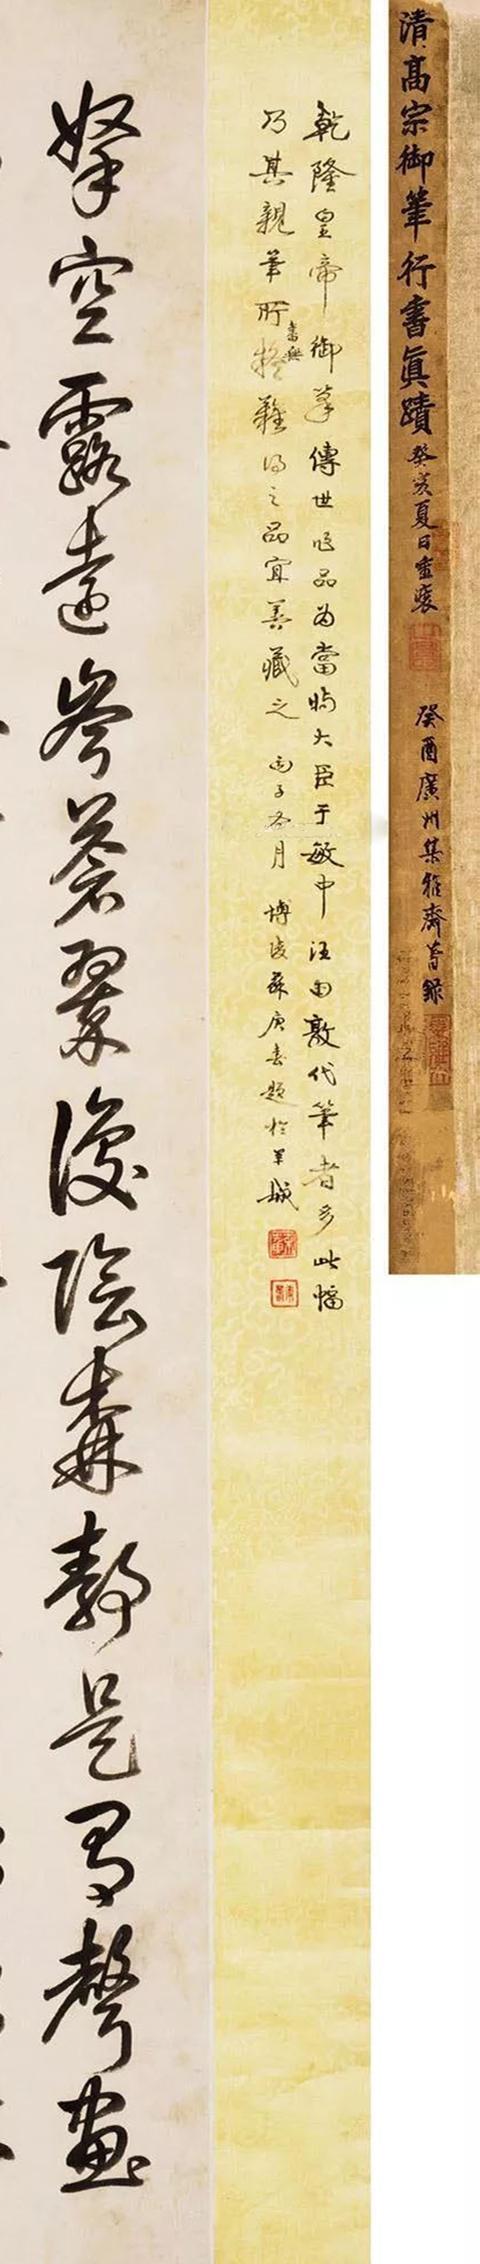 清高宗御筆行書眞蹟 癸亥夏日重裝
癸酉廣州集雅齋著錄
乾隆皇帝御筆傳世作品為當時大臣于敏中汪由敦代筆者多此幅
乃其親筆所書無疑難得之品宜善藏之 丙子冬月 博陵蘇庚春題於羊城
拏空露遠岑蒼翠復陰森靜是有聲畫